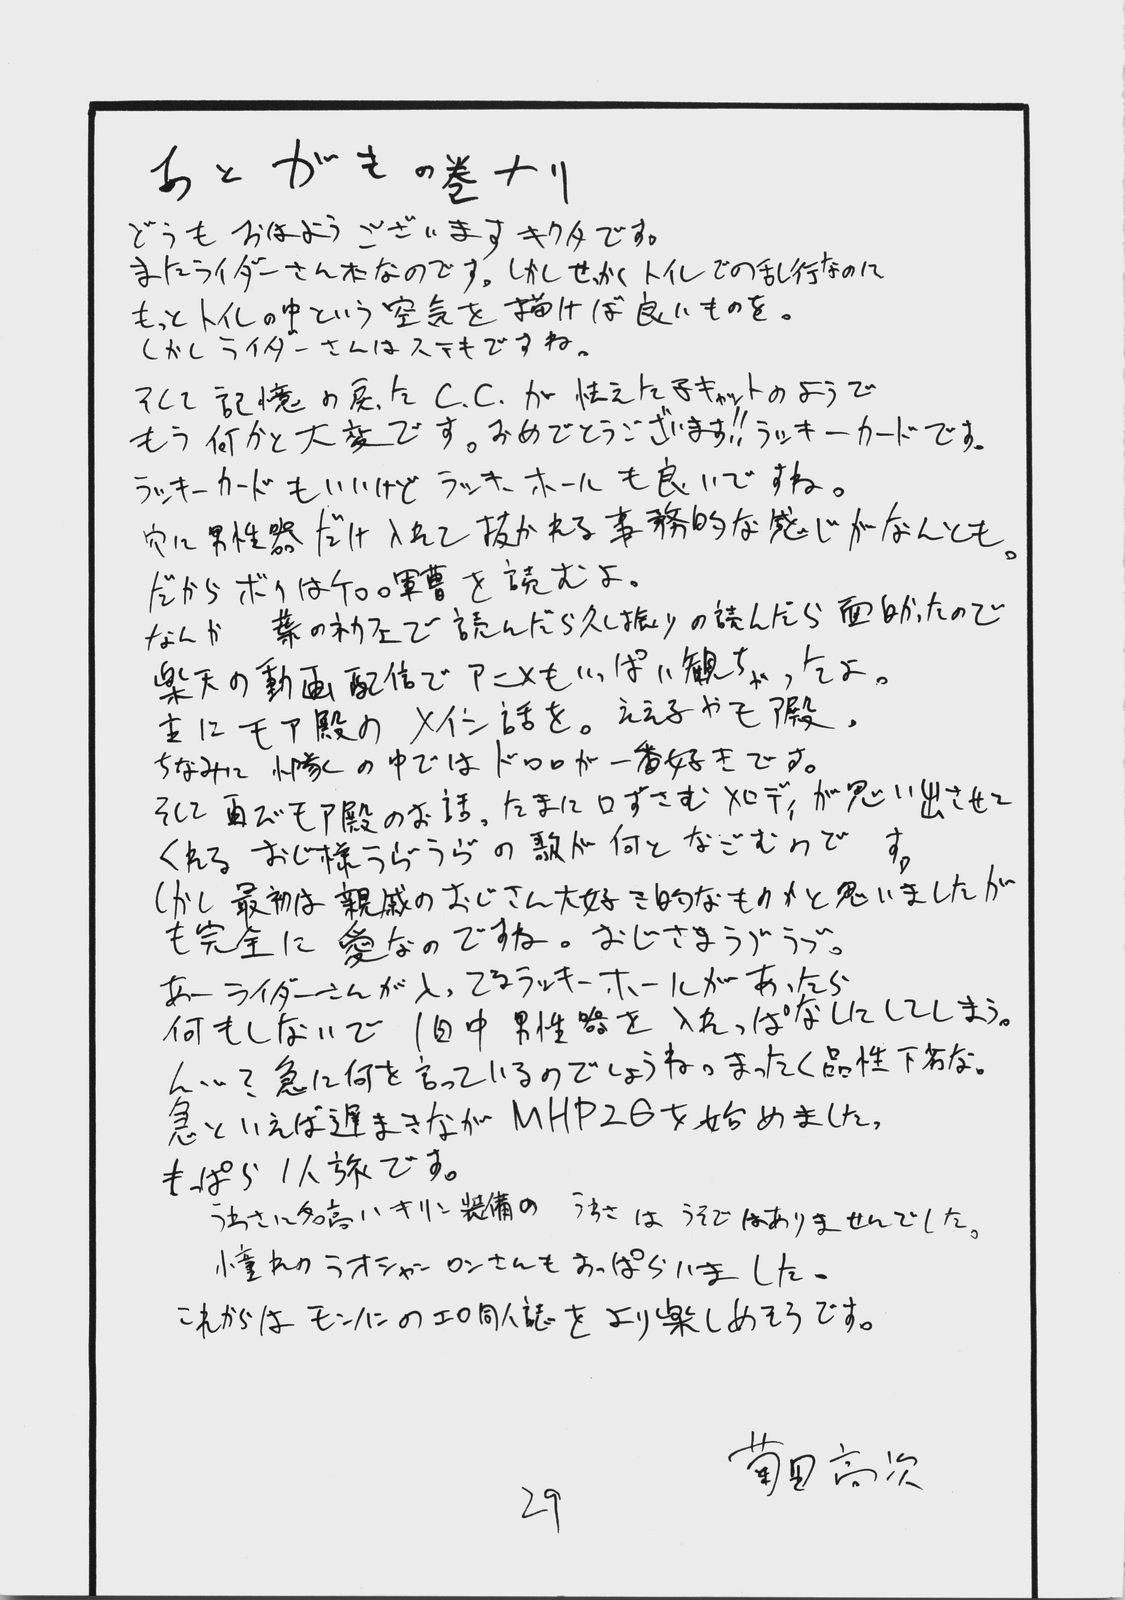 あとがきの巻ナリ
どうもおはようございますキクタです。
またライダーさん本なのです。しかしせっかくトイレでの乱行なのに
もっとトイレの中という空気を描けば良いものを。
しかしライダーさんはステキですね。
そして記憶の戻ったC.C.が怯えた子キャットのようで
もう何かと大変です。おめでとうございます!!ラッキーカードです。
ラッキーカードもいいけどラッキーホールも良いですね。
穴に男性器だけ入れて抜かれる事務的な感じがなんとも。
だからボクはケロロ軍曹を読むよ。
なんか で読んだら久し振りの読んだら面白かったので
楽天の動画配信でアニメもいっぱい観ちゃったよ。
主にモア殿のメイン話を。ええ子やモア殿。
ちなみに小隊の中ではドロロが一番好きです。
そして再びモア殿のお話。たまに口ずさむメロディが思い出させて
くれるおじ様うぢうぢの歌が何となごむのです。
しかし最初は親戚のおじさん大好き的なものかと思いましたが
も完全に愛なのですね。おじさまラヴラヴ。
あーライダーさんが入ってるラッキーホールがあったら
何もしないで1日中男性器を入れっぱなしにしてしまう。
ん…?急に何を言っているのでしょうね。まったく品性下劣な。
急といえば遅まきながMHP2Gを始めました。
もっぱら1人旅です。
うわさに名高いキリン装備のうわさはうそではありませんでした。
憧れのラオシャンロンさんもおっぱらいました。
これからはモンハンのエロ同人誌をより楽しめそうです。
菊田高次
29